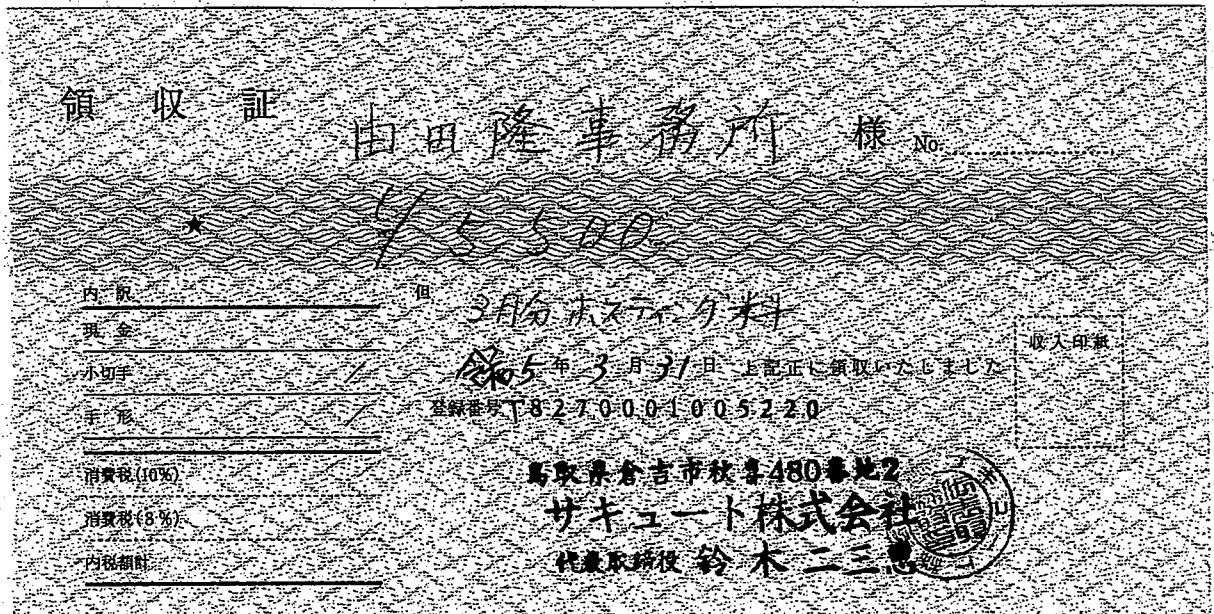 領収証
由田隆事務所 様 No.
★ ¥5,500
内訳
現金
小切手
手形
消費税(10%)
消費税(8%)
内税額計
但 3月分ホスティング料
令和5年3月31日 上記正に領収いたしました
登録番号 T8270001005220
収入印紙
鳥取県倉吉市秋喜480番地2
サキュート株式会社
代表取締役 鈴木二三